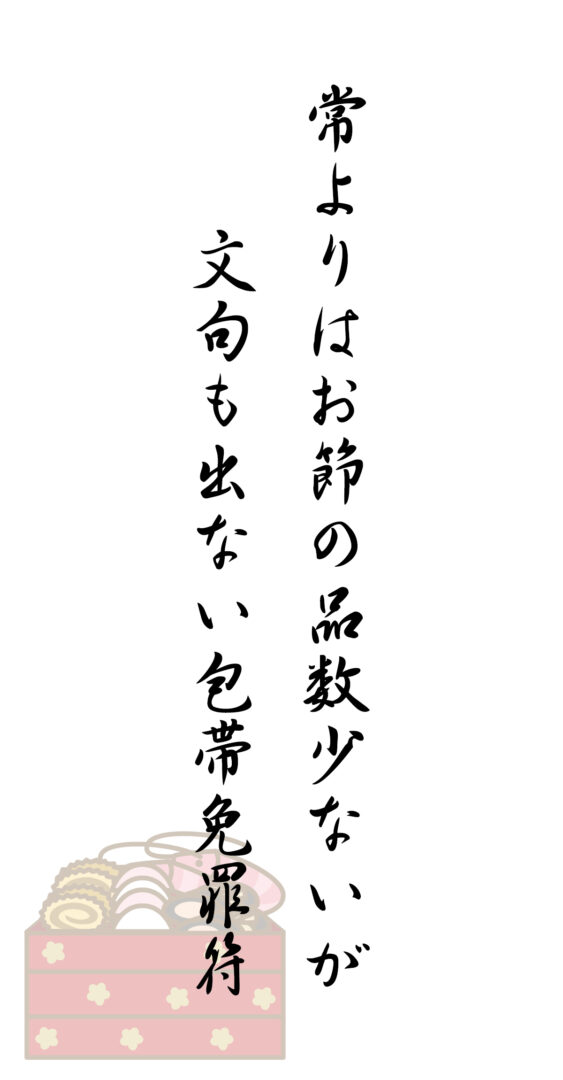 常よりはお節の品数少ないが
文句も出ない包帯免罪符